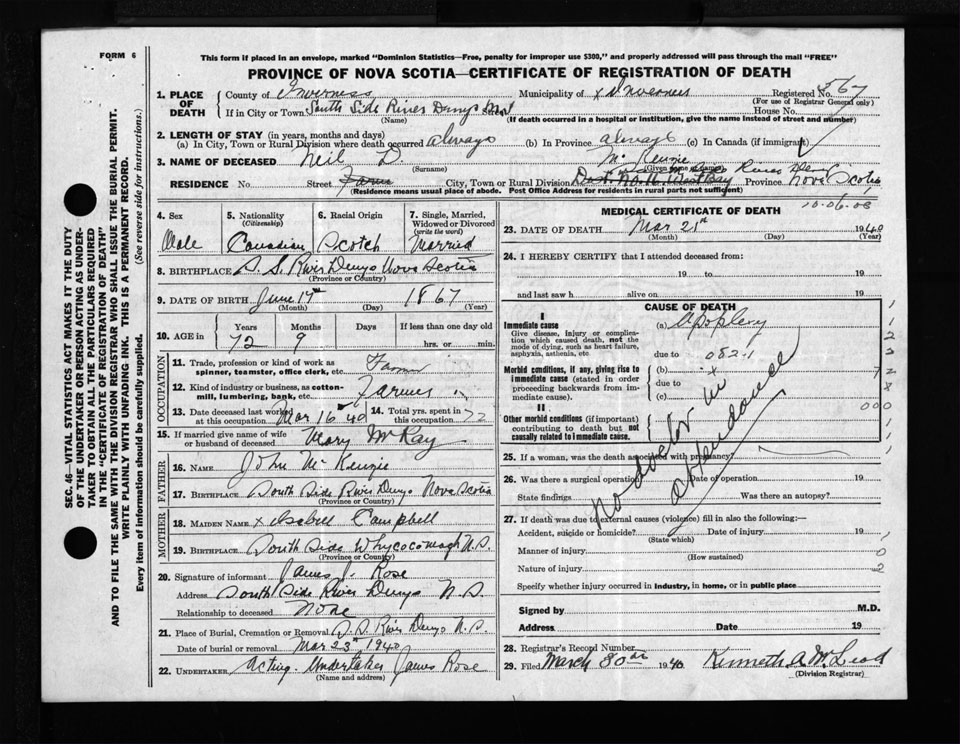 FORM 6
This form if placed in an envelope, marked "Dominion Statistics—Free, penalty for improper use $300," and properly addressed will pass through the mail "FREE"
PROVINCE OF NOVA SCOTIA—CERTIFICATE OF REGISTRATION OF DEATH
SEC. 46—VITAL STATISTICS ACT MAKES IT THE DUTY
OF THE UNDERTAKER OR PERSON ACTING AS UNDER-
TAKER TO OBTAIN ALL THE PARTICULARS REQUIRED
IN THE "CERTIFICATE OF REGISTRATION OF DEATH"
AND TO FILE THE SAME WITH THE DIVISION REGISTRAR WHO SHALL ISSUE THE BURIAL PERMIT.
WRITE PLAINLY WITH UNFADING INK. THIS IS A PERMANENT RECORD.
Every item of information should be carefully supplied. (See reverse side for instructions.)
1. PLACE OF DEATH County of Inverness Municipality of x Inverness Registered No. 567
(For use of Registrar General only)
If in City or Town South Side River Denys Street House No.
(Name) (If death occurred in a hospital or institution, give the name instead of street and number)
2. LENGTH OF STAY (in years, months and days)
(a) In City, Town or Rural Division where death occurred always (b) In Province always (c) In Canada (if immigrant)
3. NAME OF DECEASED Neil D McKenzie
(Surname) (Given names)
RESIDENCE No. Street Farm City, Town or Rural Division River Denys Province Nova Scotia
(Residence means usual place of abode. Post Office Address for residents in rural parts not sufficient)
4. Sex 5. Nationality (Citizenship) 6. Racial Origin 7. Single, Married, Widowed or Divorced (write the word)
Male Canadian Scotch Married
8. BIRTHPLACE S. S. River Denys Nova Scotia
(Province or Country)
9. DATE OF BIRTH June 17th 1867
(Month) (Day) (Year)
10. AGE in Years Months Days If less than one day old
72 9 hrs. or min.
OCCUPATION
11. Trade, profession or kind of work as spinner, teamster, office clerk, etc. Farmer
12. Kind of industry or business, as cotton-mill, lumbering, bank, etc. Farmer
13. Date deceased last worked at this occupation Mar 16th 40 14. Total yrs. spent in 72
15. If married give name of wife or husband of deceased Mary McKay
FATHER
16. NAME John McKenzie
17. BIRTHPLACE South Side River Denys Nova Scotia
(Province or Country)
MOTHER
18. MAIDEN NAME x Isabell Campbell
19. BIRTHPLACE South Side Whycocomagh N.S.
(Province or Country)
20. Signature of informant James J. Rose
Address South Side River Denys N.S.
Relationship to deceased None
21. Place of Burial, Cremation or Removal S. S. River Denys N.S.
Date of burial or removal Mar 23rd 1940
22. UNDERTAKER Acting Undertaker James Rose
(Name and address)
MEDICAL CERTIFICATE OF DEATH 10.06.08
23. DATE OF DEATH Mar 21st 1940
(Month) (Day) (Year)
24. I HEREBY CERTIFY that I attended deceased from:
19 to 19
and last saw h alive on 19
CAUSE OF DEATH
I
Immediate cause
Give disease, injury or complication which caused death, not the mode of dying, such as heart failure, asphyxia, asthenia, etc
(a) Apoplexy
due to 082-1
Morbid conditions, if any, giving rise to immediate cause (stated in order proceeding backwards from immediate cause).
(b) x
due to
(c)
II
Other morbid conditions (if important) contributing to death but not causally related to immediate cause.
No doctor in attendance
25. If a woman, was the death associated with pregnancy?
26. Was there a surgical operation? Date of operation 19
State findings Was there an autopsy?
27. If death was due to external causes (violence) fill in also the following:—
Accident, suicide or homicide? Date of injury 19
(State which)
Manner of injury
(How sustained)
Nature of injury
Specify whether injury occurred in industry, in home, or in public place
Signed by M.D.
Address Date 19
28. Registrar's Record Number
29. Filed March 30th 1940 Kenneth A. McLeod
(Division Registrar)